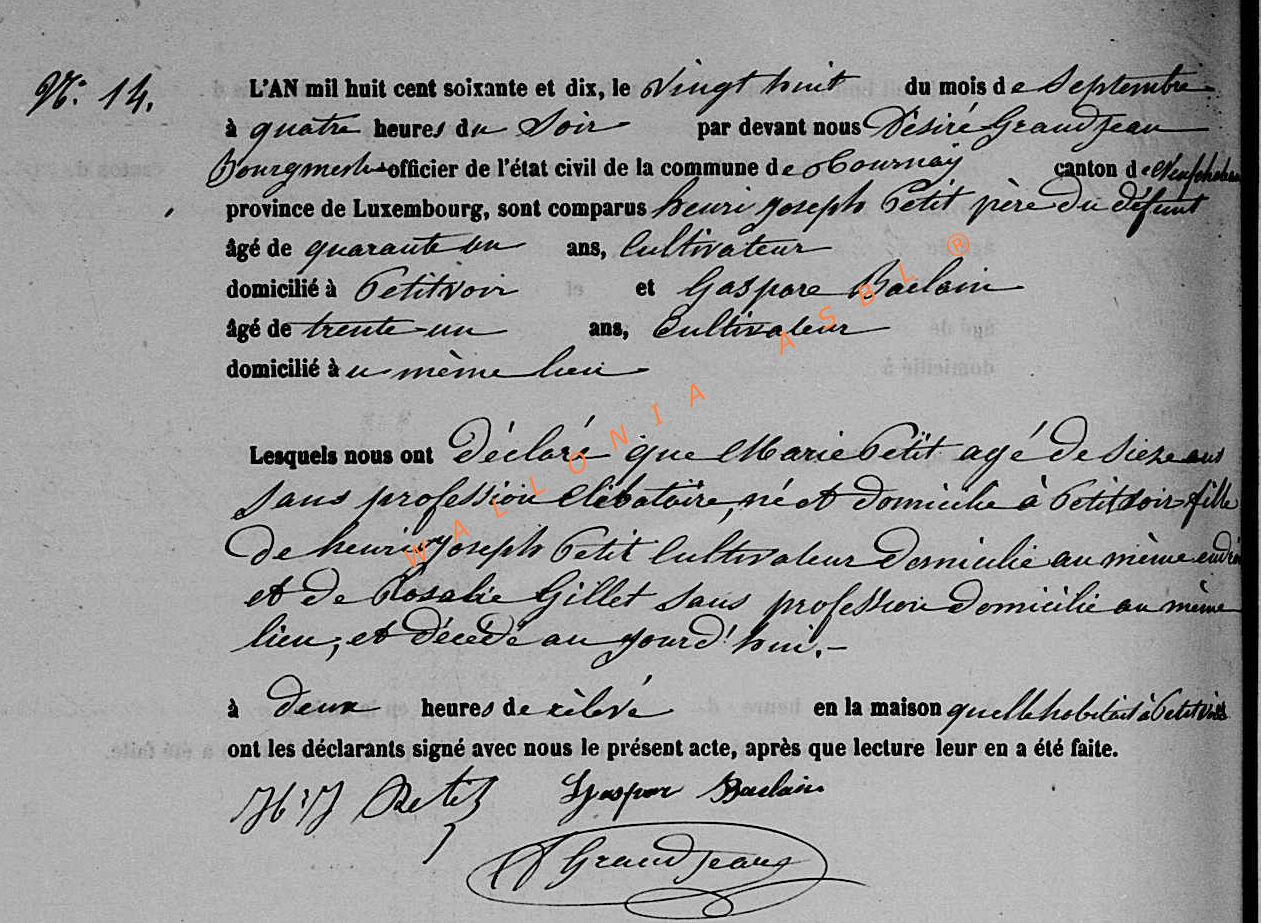 N° 14.
L'AN mil huit cent soixante et dix, le vingt huit du mois de Septembre
à quatre heures du Soir par devant nous Désiré Grandjean
Bourgmestre officier de l'état civil de la commune de Tournay canton de Neufchateau
province de Luxembourg, sont comparus henri joseph Petit père du défunt
âgé de quarante un ans, Cultivateur
domicilié à Petitvoir et Gaspare Baclain
âgé de trente-un ans, Cultivateur
domicilié à u même lieu
Lesquels nous ont Déclaré que Marie Petit agé de Sieze ans
Sans profession Clébatoire, né et domicilié à Petitvoir fille
de henri joseph Petit Cultivateur Domicilié au même endroi
et de Rosalie Gillet Sans profession Domicilié au même
lieu, et décédé au jourd'hui.-
à deux heures de rélevé en la maison quelle habitait à Petitvoir
ont les déclarants signé avec nous le présent acte, après que lecture leur en a été faite.
H. J Petit Gaspar Baclain
D Grandjean
WALLONIA ASBL ®